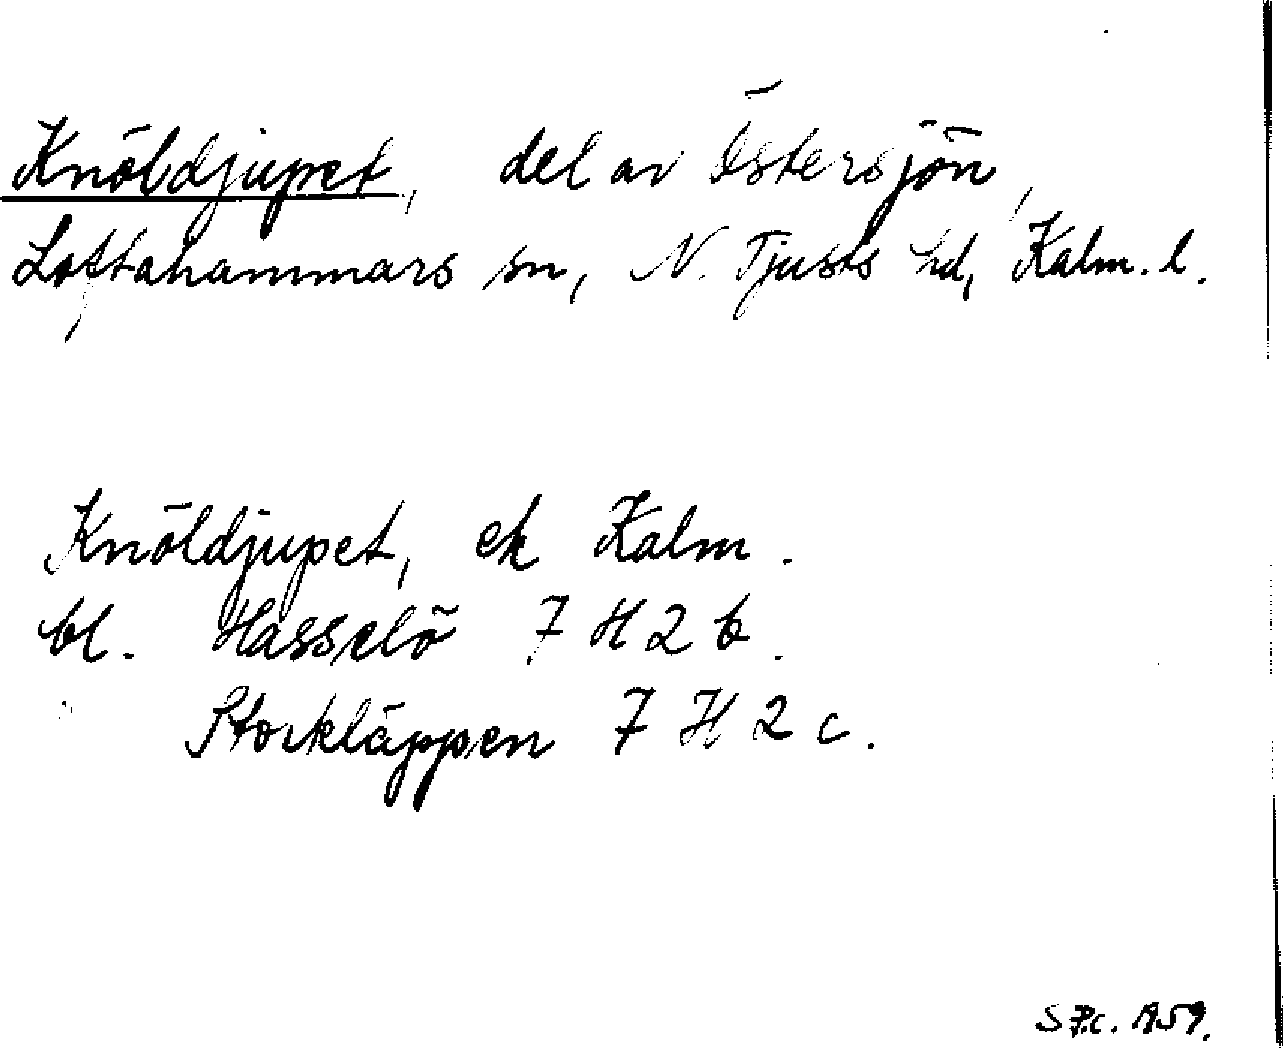 Knöldjupet, del av Östersjön,
Loftahammars sn, N. Tjusts hd, Kalm. l.
Knöldjupet, ek Kalm.
bl. Hasselö 7 H 2 b.
Storkläppen 7 H 2 c.
1959.